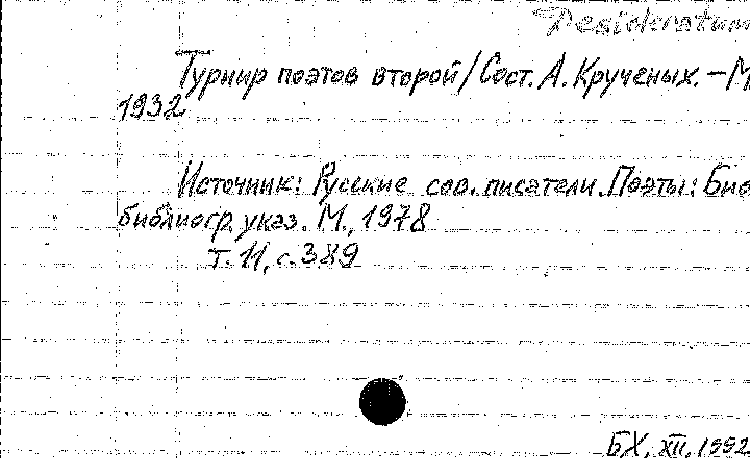 Desideratum
Турнир поэтов второй/Сост. А. Крученых. – М
1932
Источник: Русские сов. писатели. Поэты: Био
библиогр. указ. М., 1978
т. 11, с. 389
БХ, XII, 1992